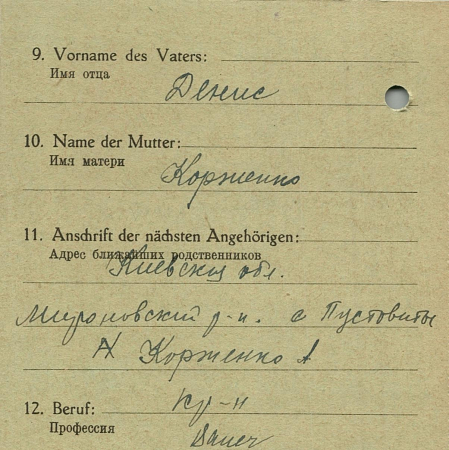 9. Vorname des Vaters:
Имя отца
Денис
10. Name der Mutter:
Имя матери
Корженко
11. Anschrift der nächsten Angehörigen:
Адрес ближайших родственников
Киевская обл.
Мироновский р-н. с Пустовиты
Корженко А
12. Beruf: кр-н
Профессия
Bauer